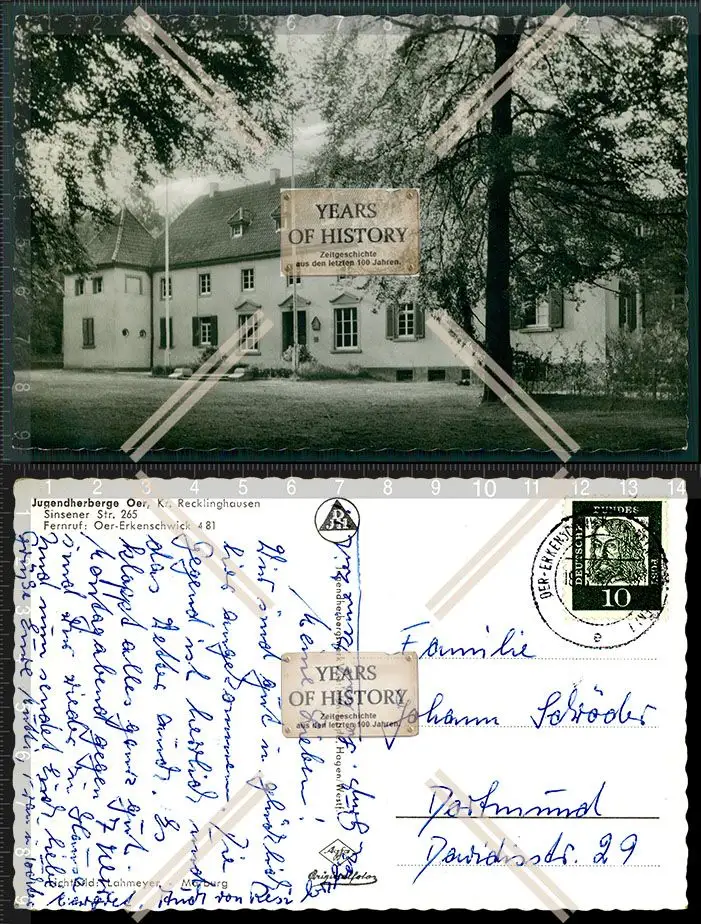 YEARS
OF HISTORY
Zeitgeschichte
aus den letzten 100 Jahren.
Jugendherberge Oer, Kr. Recklinghausen
Sinsener Str. 265
Fernruf: Oer-Erkenschwick 481
Meine Lieben!
Wir sind gut in
hier angekommen. Die
Gegend ist herrlich und
das Wetter auch. Es
klappt alles ganz gut.
Montagabend gegen 7
sind wir wieder in
Und nun sendet Euch liebe
Grüße Eure
YEARS
OF HISTORY
Zeitgeschichte
aus den letzten 100 Jahren.
Hagen/Westf.
Originalfoto
Lahmeyer, Marburg
DEUTSCHE
BUNDES
POST
10
OER-ERKENSCHWICK
e
Familie
Johann Schröder
Dortmund
Davidisstr. 29